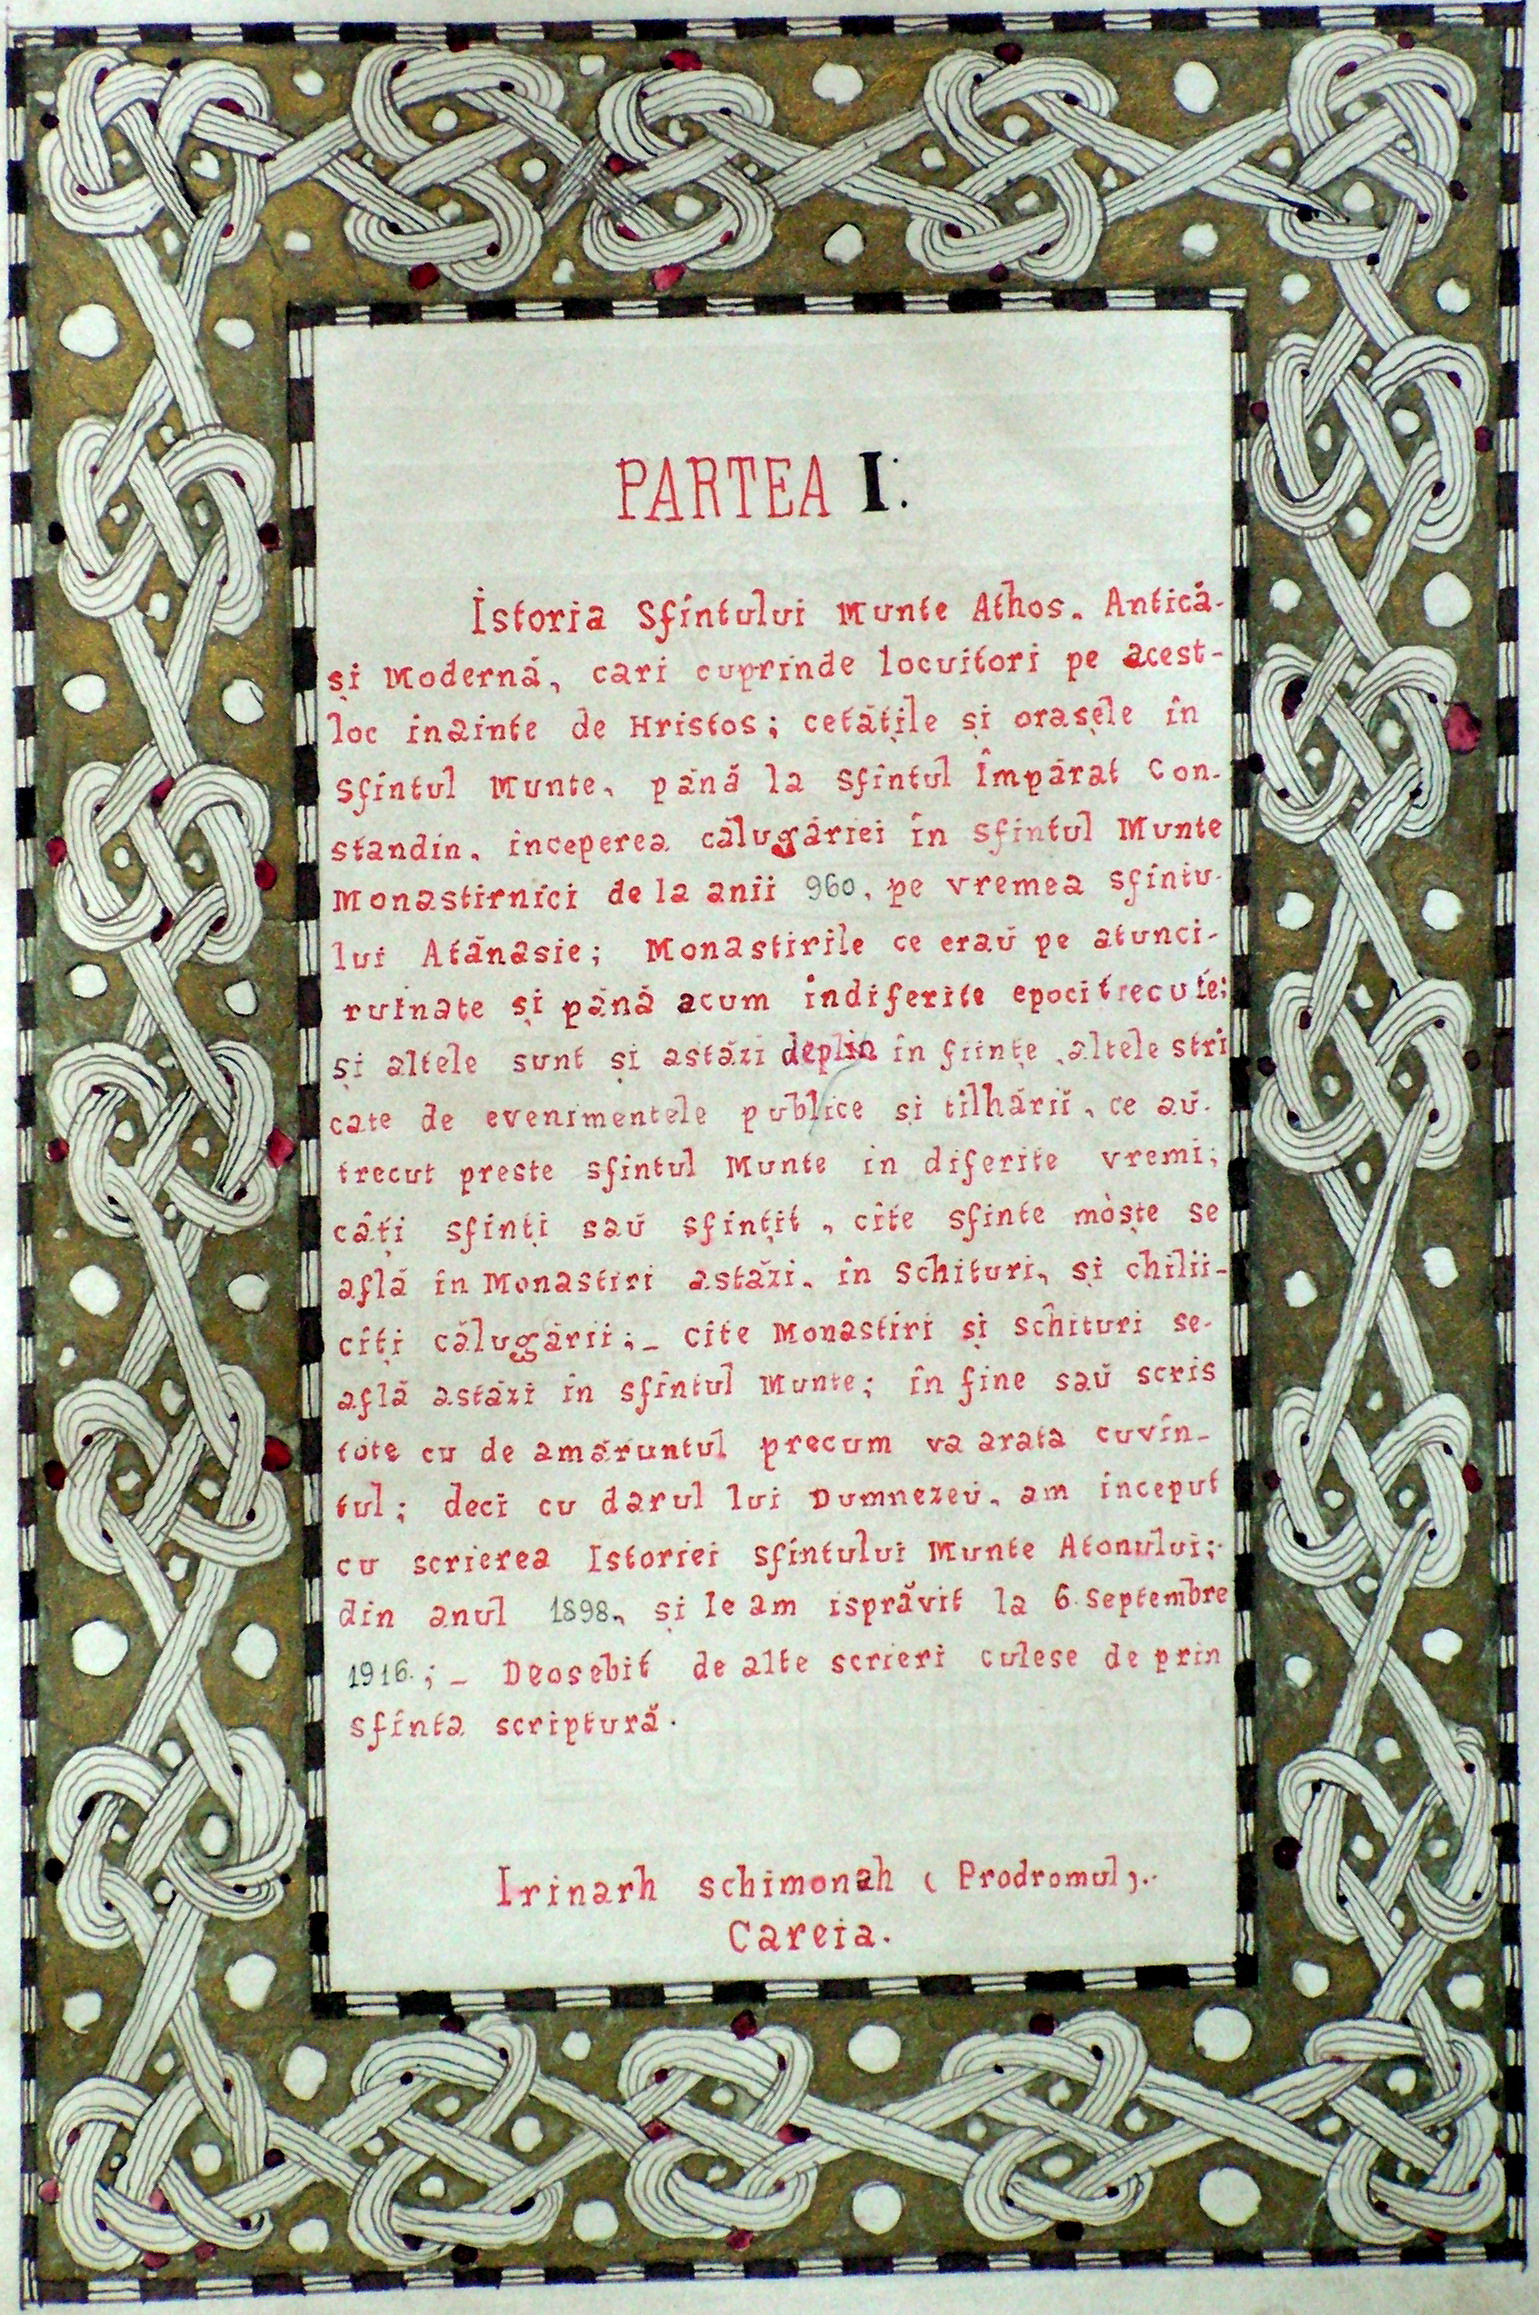 PARTEA I:
Istoria Sfîntului Munte Athos. Antică-
și Modernă, cari cuprinde locuitori pe acest-
loc inainte de Hristos; cetățile și orașele în
Sfîntul Munte, până la Sfîntul Împărat Con-
standin, inceperea călugăriei în Sfintul Munte
Monastirnici de la anii 960, pe vremea sfintu-
lui Atănasie; Monastirile ce eraŭ pe atunci-
ruinate și până acum indiferite epoci trecute;
și altele sunt și astăzi deplin în ființe, altele stri
cate de evenimentele publice și tîlhării, ce aŭ-
trecut preste sfintul Munte in diferite vremi;
câți sfinți saŭ sfințit, cîte sfinte mòște se
află în Monastiri astăzi, în Schituri, și chilii-
cîți călugării;_ cîte Monastiri și schituri se-
află astăzi în sfîntul Munte; în fine saŭ scris
tóte cu de amăruntul precum va arata cuvîn-
tul; deci cu darul lui Dumnezeŭ, am început
cu scrierea Istoriei Sfîntului Munte Atonului;
din anul 1898, și le am isprăvit la 6 Septembre
1916.;_ Deosebit de alte scrieri culese de prin
sfînta scriptură.
Irinarh schimonah (Prodromul).
Careia.